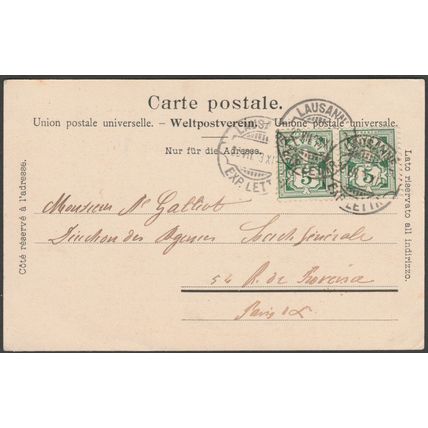 Carte postale.
Union postale universelle. – Weltpostverein. – Unione postale universale.
Nur für die Adresse.
Côté réservé à l'adresse.
Lato riservato all'indirizzo.
LAUSANNE
EXP. LETTR.
5 5
Monsieur
Direction des Agences Société Générale
54 R. de
Paris